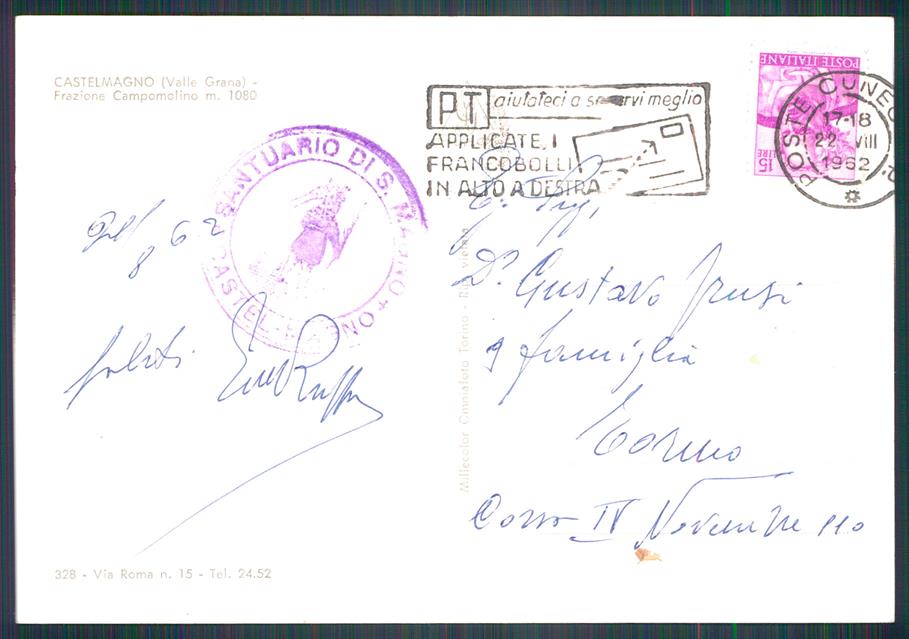 CASTELMAGNO (Valle Grana) -
Frazione Campomolino m. 1080
PT aiutateci a servirvi meglio
APPLICATE I
FRANCOBOLLI
IN ALTO A DESTRA
POSTE ITALIANE
LIRE 15
POSTE CUNEO
17-18
22 VIII
1962
SANTUARIO DI S. MAGNO
CASTELMAGNO
8 62
Saluti
Dr. Gustavo
famiglia
Torino
Corso IV Novembre 110
Millecolor Omniafoto Torino - Rip. vietata
328 - Via Roma n. 15 - Tel. 24.52